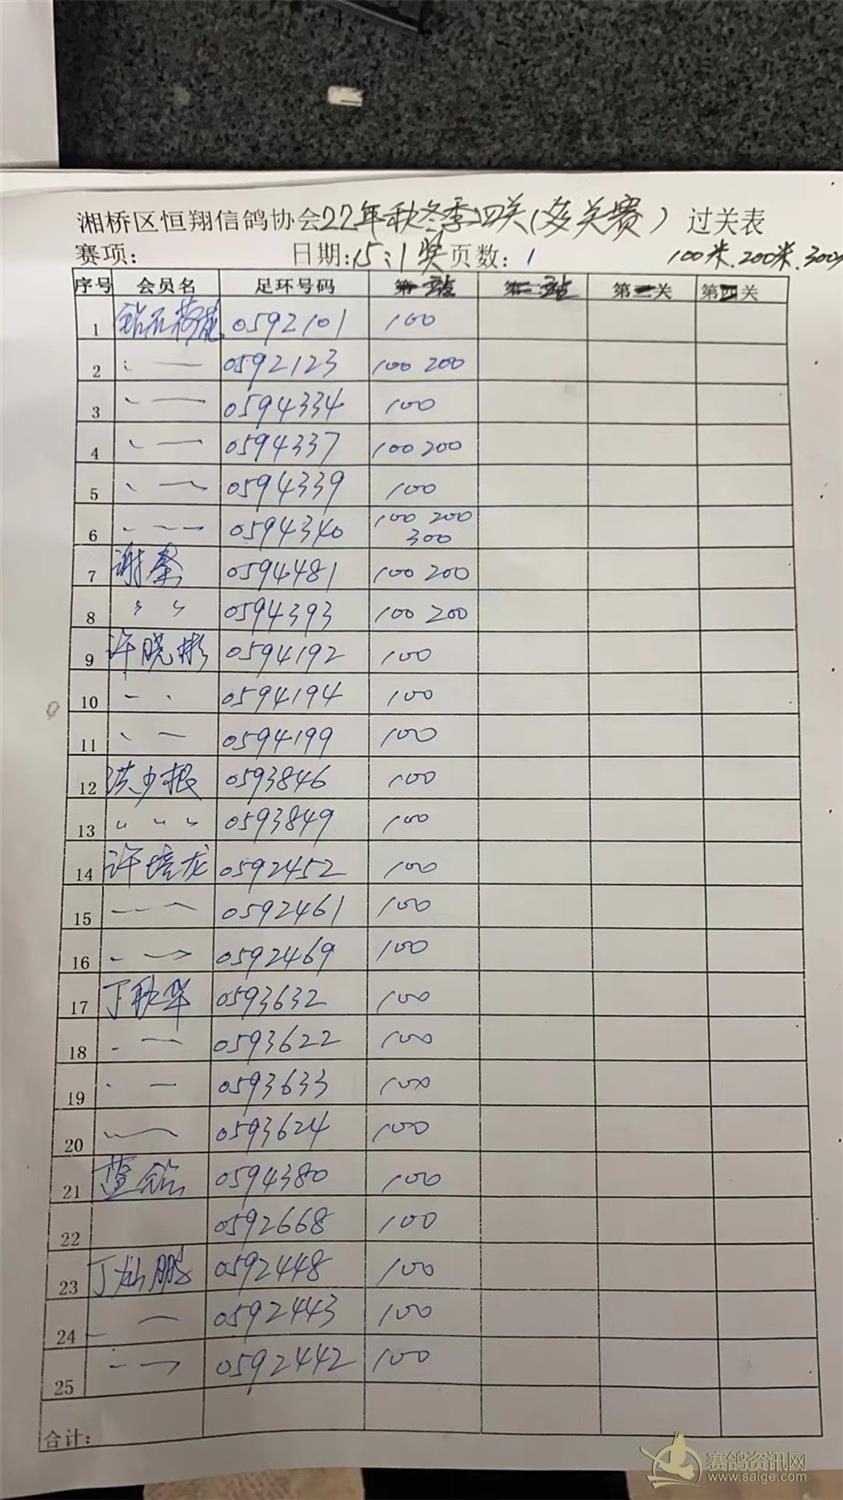 湘桥区恒翔信鸽协会22年秋冬季四关(多关赛) 过关表
赛项: 日期:15:1奖 页数:1 100米.200米.300
序号 会员名 足环号码 第一 第二 第三关 第四关
1 钻石 0592101 100
2 〃 0592123 100 200
3 〃 0594334 100
4 〃 0594337 100 200
5 〃 0594339 100
6 〃 0594340 100 200 300
7 谢 0594481 100 200
8 〃 0594393 100 200
9 许晓彬 0594192 100
10 〃 0594194 100
11 〃 0594199 100
12 洪少根 0593846 100
13 〃 0593849 100
14 许培龙 0592452 100
15 〃 0592461 100
16 〃 0592469 100
17 丁耿华 0593632 100
18 〃 0593622 100
19 〃 0593633 100
20 〃 0593624 100
21 0594380 100
22 0592668 100
23 丁灿鹏 0592448 100
24 〃 0592443 100
25 〃 0592442 100
合计:
赛鸽资讯网
www.saige.com